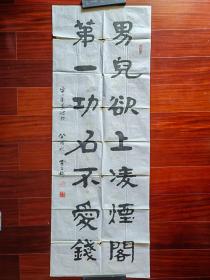 男兒欲上凌煙閣
第一功名不愛錢